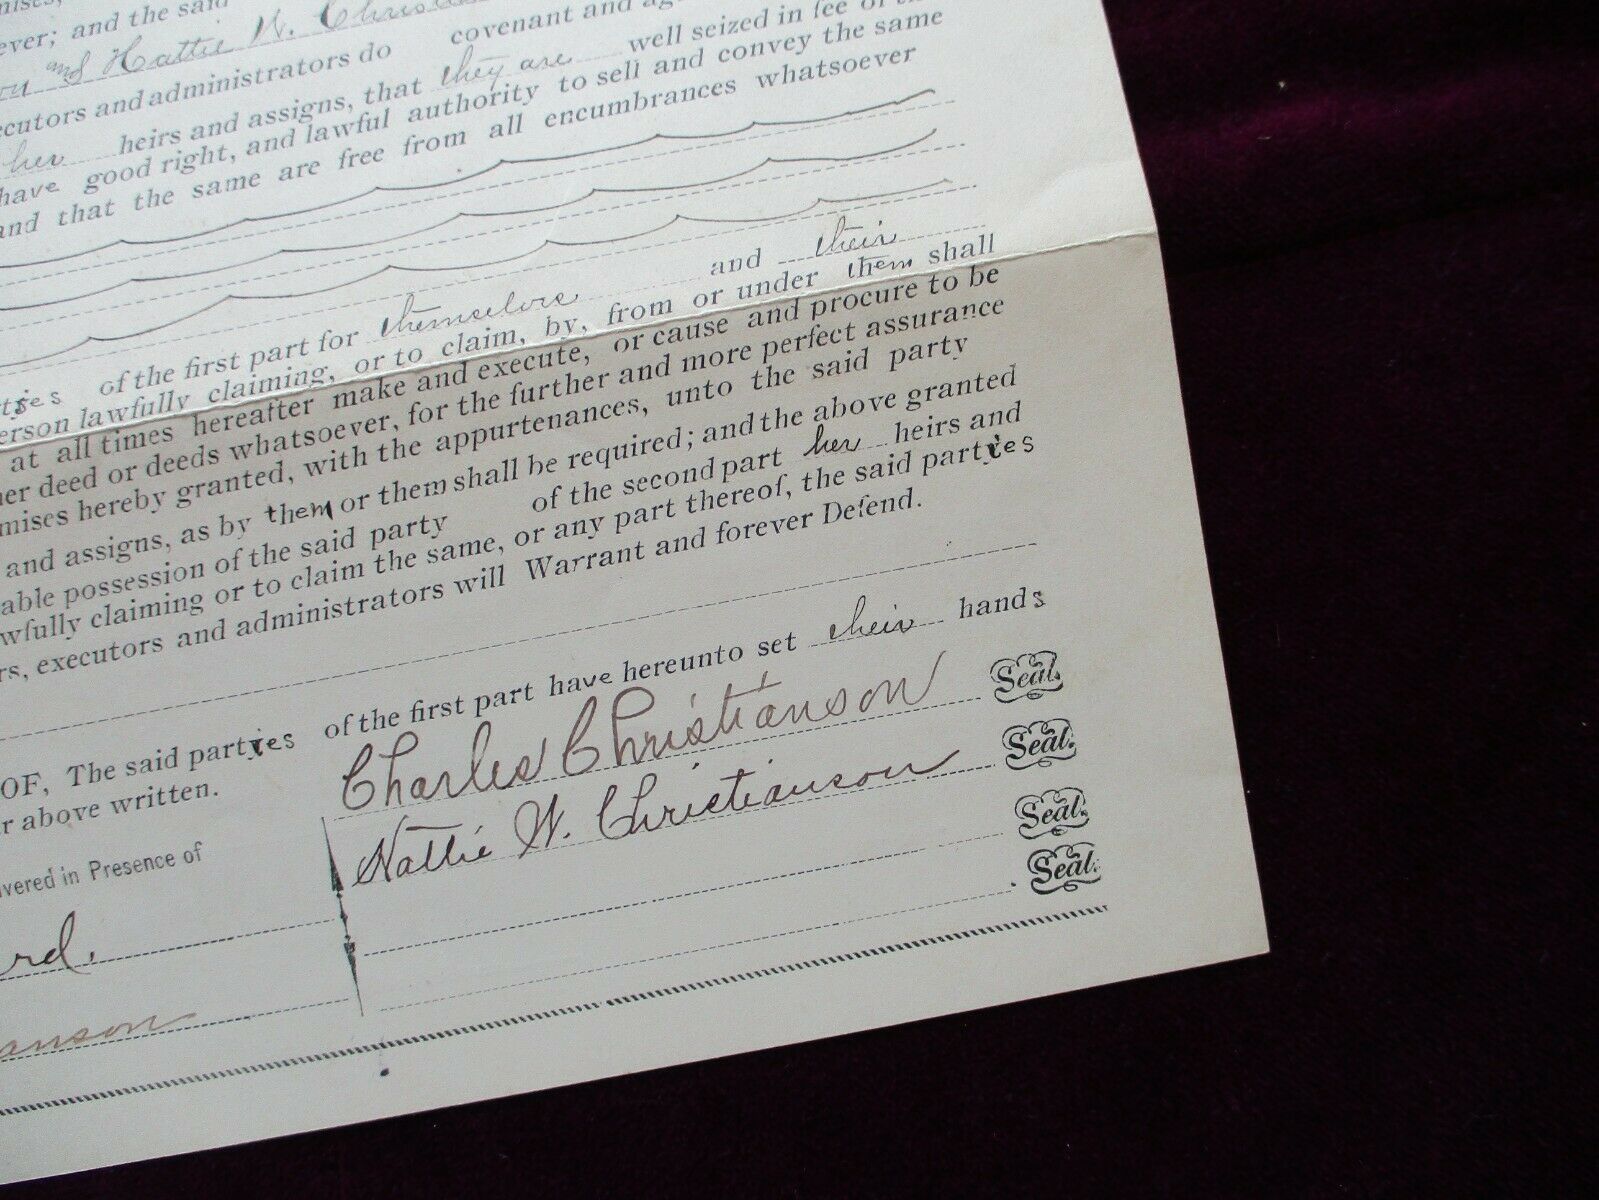 ever; and the said
and Hattie W.
ecutors and administrators do covenant and
her heirs and assigns, that they are well seized in fee of
have good right, and lawful authority to sell and convey the same
and that the same are free from all encumbrances whatsoever
of the first part for themselves and their
erson lawfully claiming, or to claim, by, from or under them shall
at all times hereafter make and execute, or cause and procure to be
her deed or deeds whatsoever, for the further and more perfect assurance
mises hereby granted, with the appurtenances, unto the said party
and assigns, as by them or them shall be required; and the above granted
able possession of the said party of the second part her heirs and
wfully claiming or to claim the same, or any part thereof, the said parties
rs, executors and administrators will Warrant and forever Defend.
OF, The said parties of the first part have hereunto set their hands
r above written.
Charles Christianson Seal.
Hattie W. Christianson Seal.
Seal.
Seal.
ivered in Presence of
rd.
anson